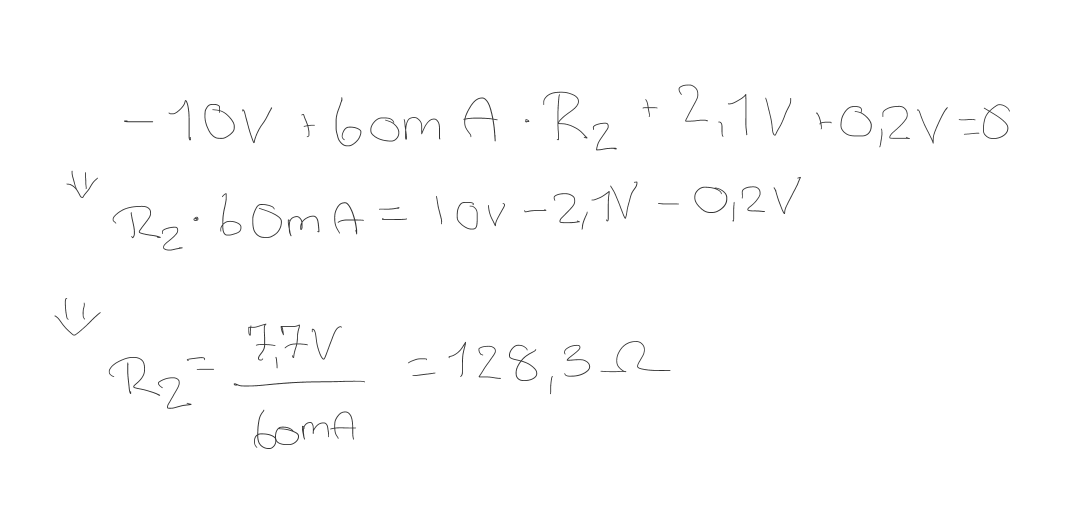 -10V + 60mA · R₂ + 2,1V + 0,2V = 0
⇓ R₂ · 60mA = 10V - 2,1V - 0,2V
⇓ R₂ = 7,7V / 60mA = 128,3 Ω